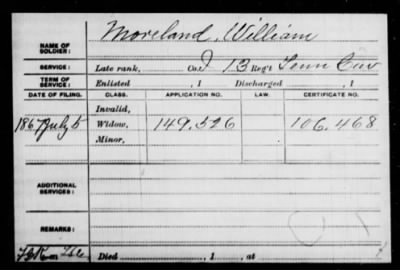 Moreland, William
NAME OF SOLDIER:
SERVICE: Late rank, Co. 13 Reg't Tenn Cav
TERM OF SERVICE: Enlisted , 1 Discharged , 1
DATE OF FILING. CLASS. APPLICATION NO. LAW. CERTIFICATE NO.
Invalid,
1867 July 5 Widow, 149.526 106.468
Minor,
ADDITIONAL SERVICES:
REMARKS:
Died , 1 , at